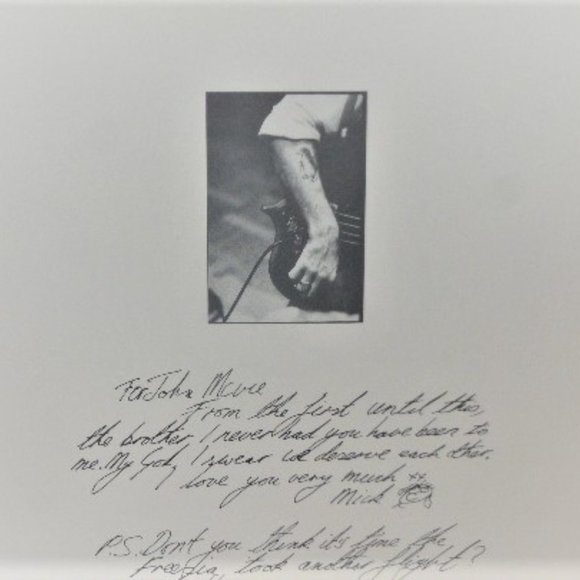 For John Mcvie
From the first until this,
the brother I never had you have been to
me. My God, I swear we deserve each other.
love you very much
Mick
P.S. Don't you think it's time the
Freesia, took another flight?